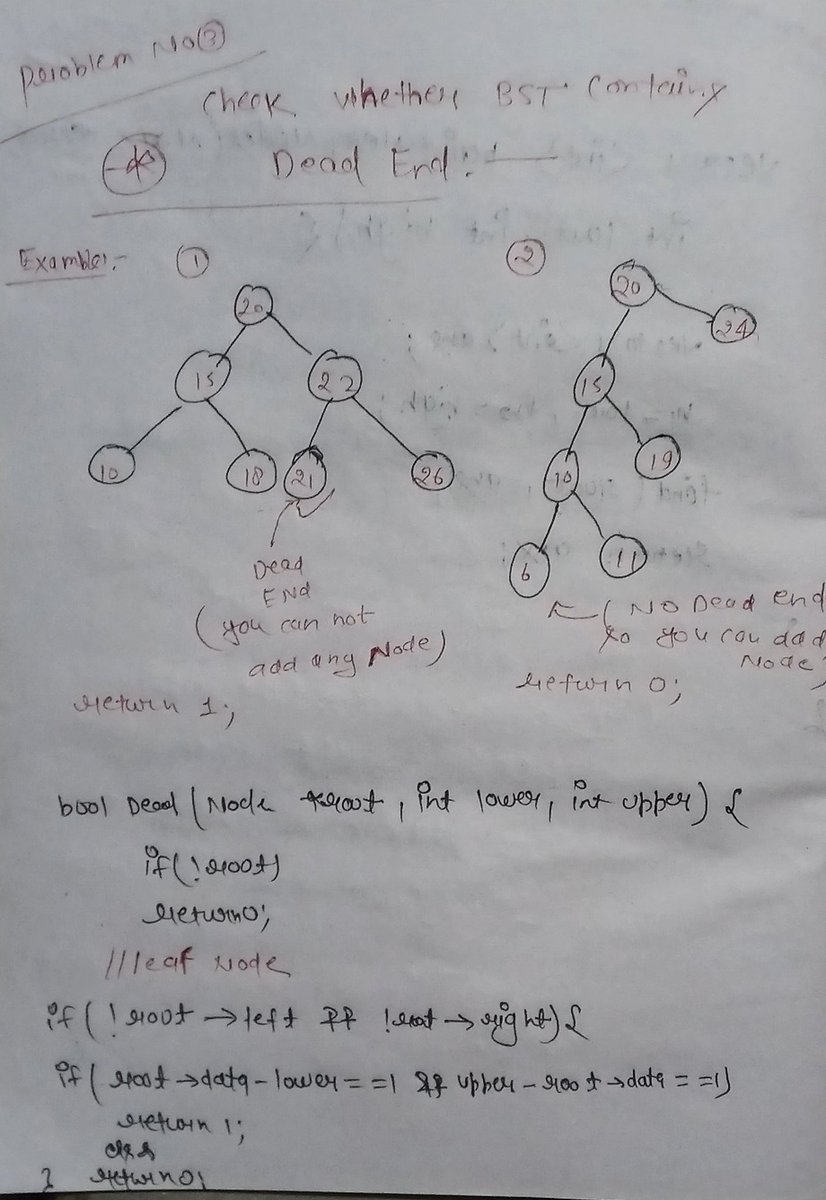 Problem No ③
Check whether BST contains
Dead End:-
Example:- ① ②
20 20
24
15 22 15
10 18 21 26 10 19
6 11
Dead
END
(you can not
add any Node)
return 1;
← (No Dead end
so you can dad
Node)
return 0;
bool Dead (Node *root, int lower, int upper) {
if(!root)
return 0;
//leaf Node
if(!root→left && !root→right){
if(root→data-lower==1 && upper-root→data==1)
return 1;
else
} return 0;